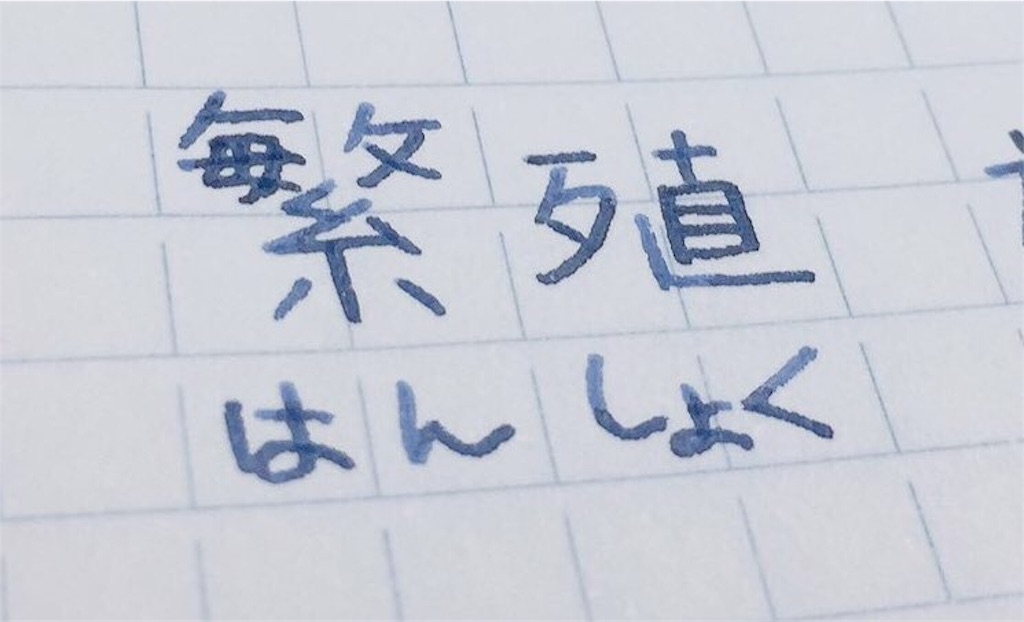 繁殖
はんしょく